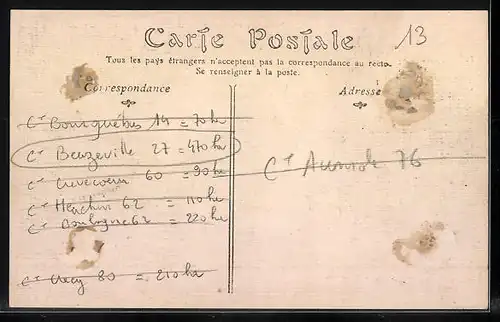 Carte Postale
13
Tous les pays étrangers n'acceptent pas la correspondance au recto.
Se renseigner à la poste.
Correspondance
Adresse
Ct Bourguébus 14 = 70 ha
Ct Beuzeville 27 = 470 ha
Ct Crevecoeur 60 = 90 ha
Ct Heuchin 62 = 110 ha
Ct Boulogne 62 = 220 ha
Ct Crecy 80 = 210 ha
Ct Aumale 76